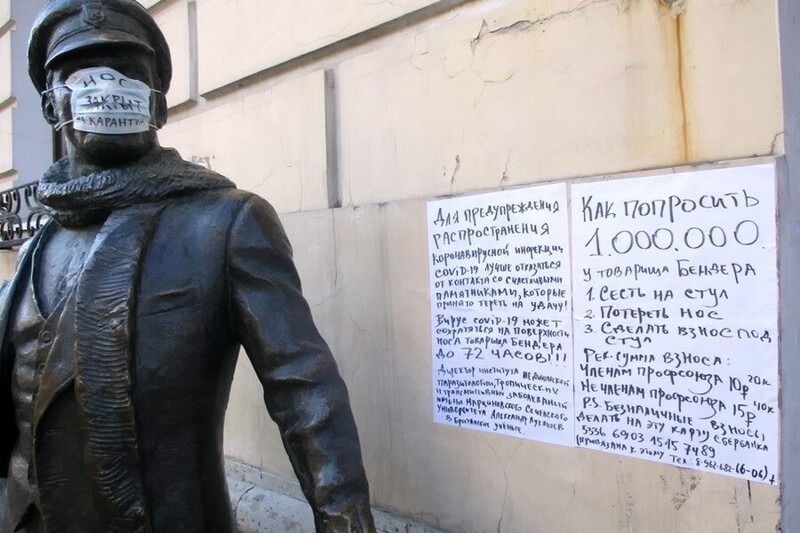 НОС
ЗАКРЫТ
КАРАНТИН
Для предупреждения
распространения
коронавирусной инфекции
COVID-19 лучше отказаться
от контакта со счастливыми
памятниками, которые
принято тереть на удачу!
Вирус COVID-19 может
сохраняться на поверхности
носа товарища Бендера
до 72 часов!!!
Директор института медицинской
паразитологии, тропических
и трансмиссивных заболеваний
имени Марциновского Сеченовского
университета Александр Лукашев
и Британские учёные.
Как попросить
1.000.000
у товарища Бендера
1. Сесть на стул
2. Потереть нос
3. Сделать взнос под
стул
Рек. сумма взноса:
Членам профсоюза 10р 20к
Не членам профсоюза 15р 40к
P.S. Безналичные взносы,
делать на эту карту Сбербанка
5536 6903 1515 7489
(привязана к этому тел: 8-962-682-(6-06)